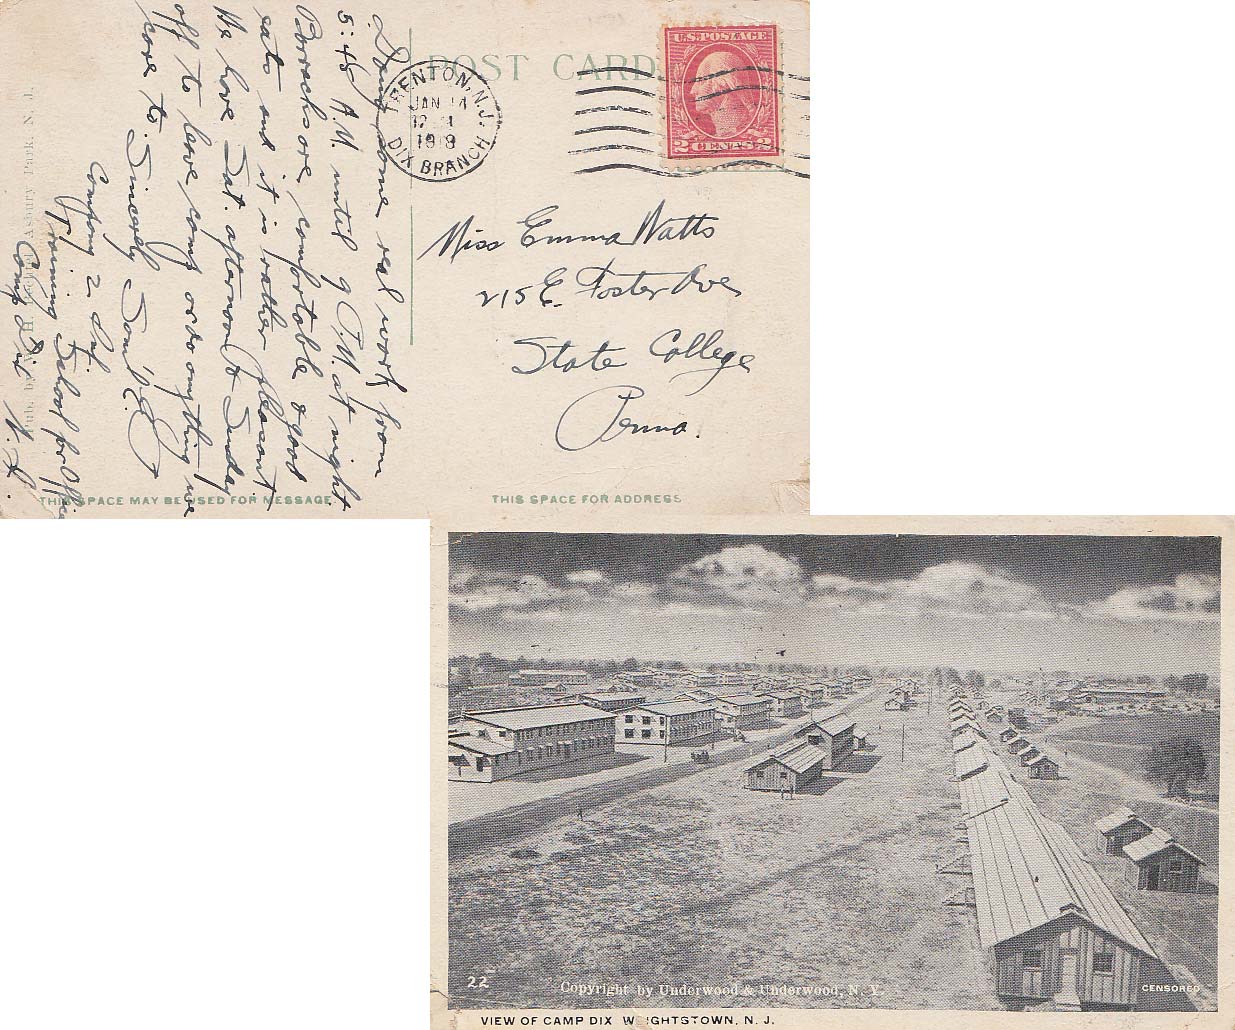 POST CARD
U.S. POSTAGE
2 CENTS 2
TRENTON, N.J.
JAN 14
1918
DIX BRANCH
Doing some real work from
5:45 A.M. until 9 P.M. at night
Barracks are comfortable & good
eats and it is rather pleasant
We have Sat. afternoon & Sunday
off to leave camp or do anything we
care to. Sincerely Sam'l
Company 2 Inf.
Training School for
Camp Dix N.J.
Miss Emma Watts
215 E. Foster Ave
State College
Penna.
Asbury Park, N. J.
THIS SPACE MAY BE USED FOR MESSAGE
THIS SPACE FOR ADDRESS
22
Copyright by Underwood & Underwood, N. Y.
CENSORED
VIEW OF CAMP DIX W IGHTSTOWN, N. J.